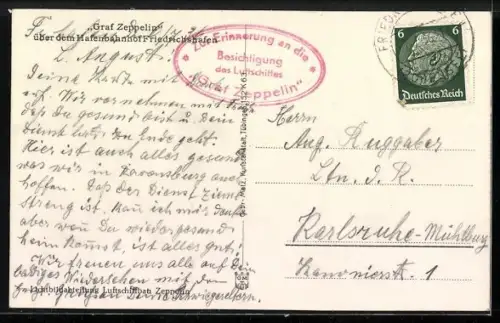 „Graf Zeppelin"
über dem Hafenbahnhof Friedrichshafen
L. August!
Deine Karte mit
erh. Wir vernehmen mit
daß Du gesund bist u. Dein
Dienst bald zu Ende geht.
Hier ist auch alles gesund
was wir in Ravensburg auch
hoffen. Daß der Dienst ziemlich
streng ist, kan ich mir denken
aber wen Du wieder gesund
heim kommst, ist alles gut!
Wir freuen uns alle auf Dein
baldiges Wiedersehen mit den
Deine Schwiegereltern.
Lichtbildabteilung Luftschiffbau Zeppelin
Zur Erinnerung an die
Besichtigung
des Luftschiffes
"Graf Zeppelin"
Gebr. Metz, Kunstanstalt, Tübingen
6 6
Deutsches Reich
Herrn
Aug. Ruggaber
Ltn. d. R.
Karlsruhe-Mühlburg
1